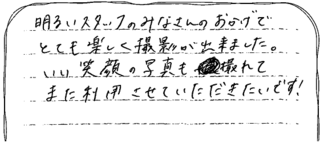 明るいスタッフのみなさんのおかげで
とても楽しく撮影が出来ました。
いい笑顔の写真も撮れて
また利用させていただきたいです!